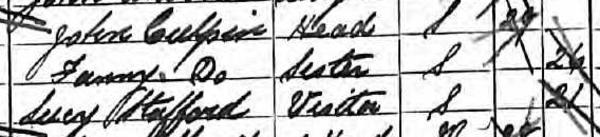 John Culpin Head S 29
Fanny Do Sister S 26
Lucy Stafford Visitor S 21